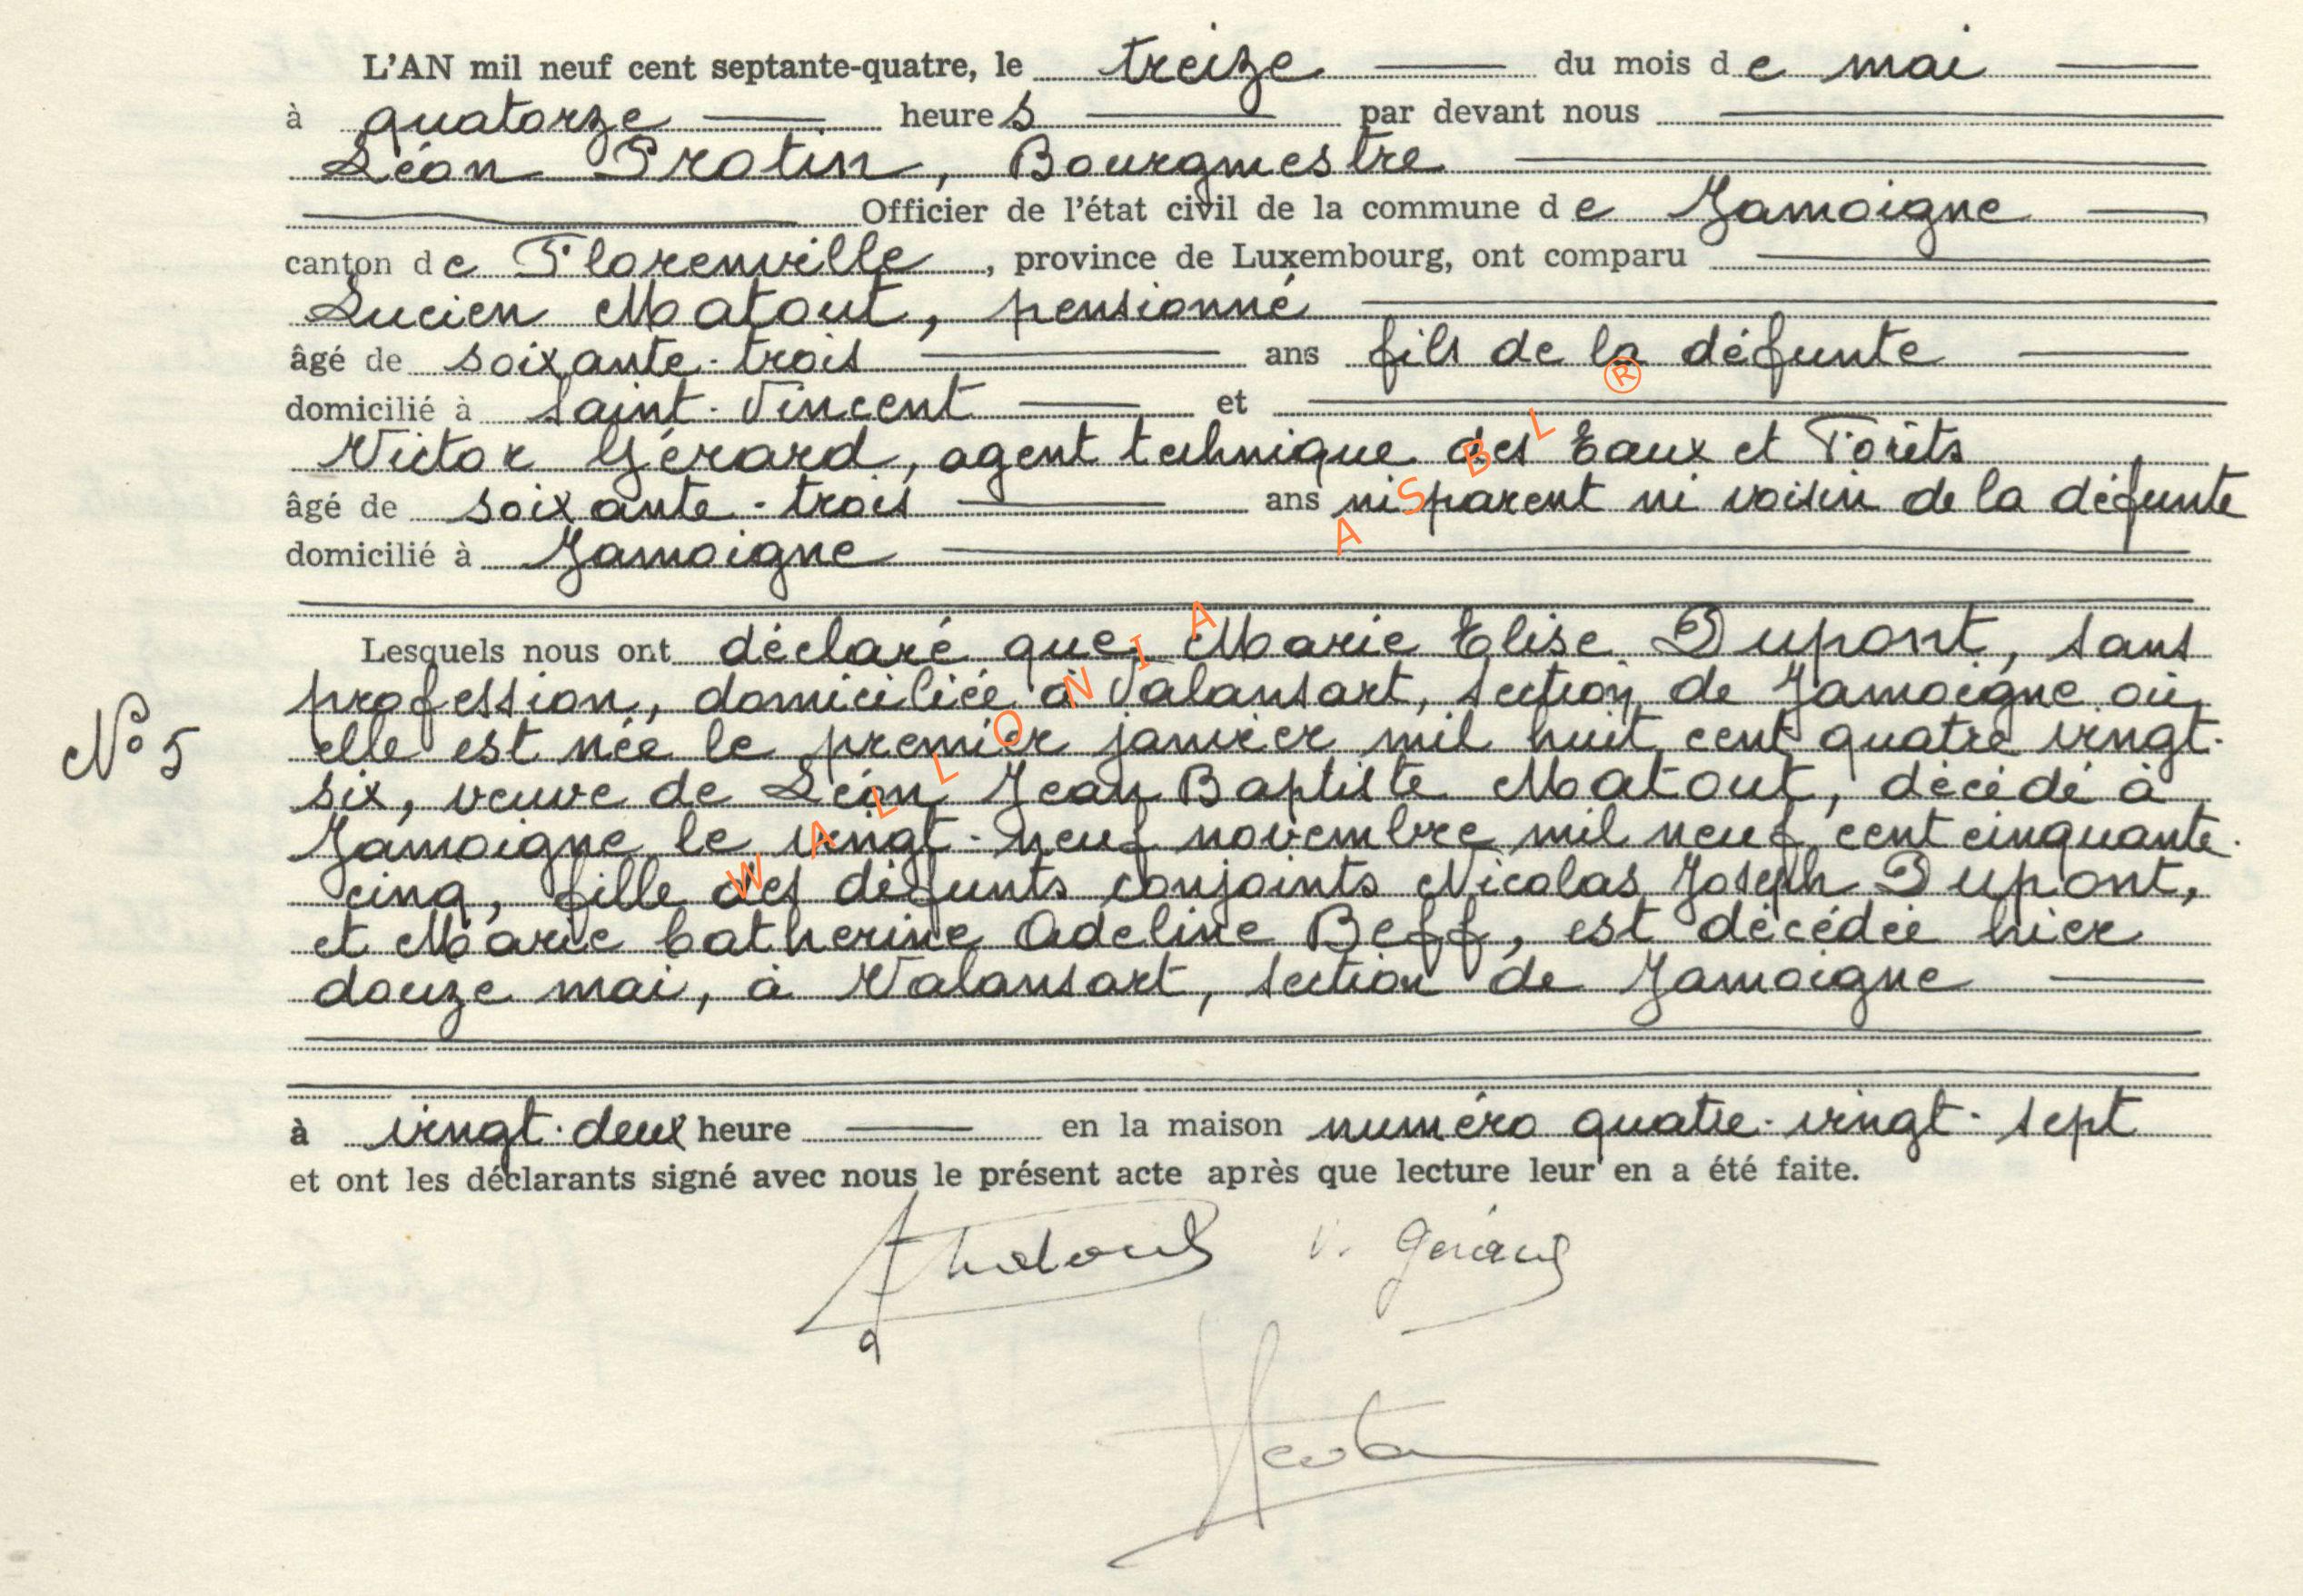 L'AN mil neuf cent septante-quatre, le treize du mois de mai
à quatorze heures par devant nous
Léon Protin, Bourgmestre
Officier de l'état civil de la commune de Jamoigne
canton de Florenville, province de Luxembourg, ont comparu
Lucien Matout, pensionné
âgé de soixante-trois ans fils de la défunte
domicilié à Saint-Vincent et
Victor Gérard, agent technique des Eaux et Forêts
âgé de soixante-trois ans ni parent ni voisin de la défunte
domicilié à Jamoigne
Lesquels nous ont déclaré que, Marie Elise Dupont, sans
profession, domiciliée à Valansart, section de Jamoigne où
elle est née le premier janvier mil huit cent quatre vingt-
N° 5
six, veuve de Léon Jean Baptiste Matout, décédé à
Jamoigne le vingt-neuf novembre mil neuf cent cinquante-
cinq, fille des défunts conjoints Nicolas Joseph Dupont,
et Marie Catherine Adeline Beff, est décédée hier
douze mai, à Valansart, section de Jamoigne
à vingt-deux heure en la maison numéro quatre-vingt-sept
et ont les déclarants signé avec nous le présent acte après que lecture leur en a été faite.
V. Gérard
WALLONIA ASBL ®